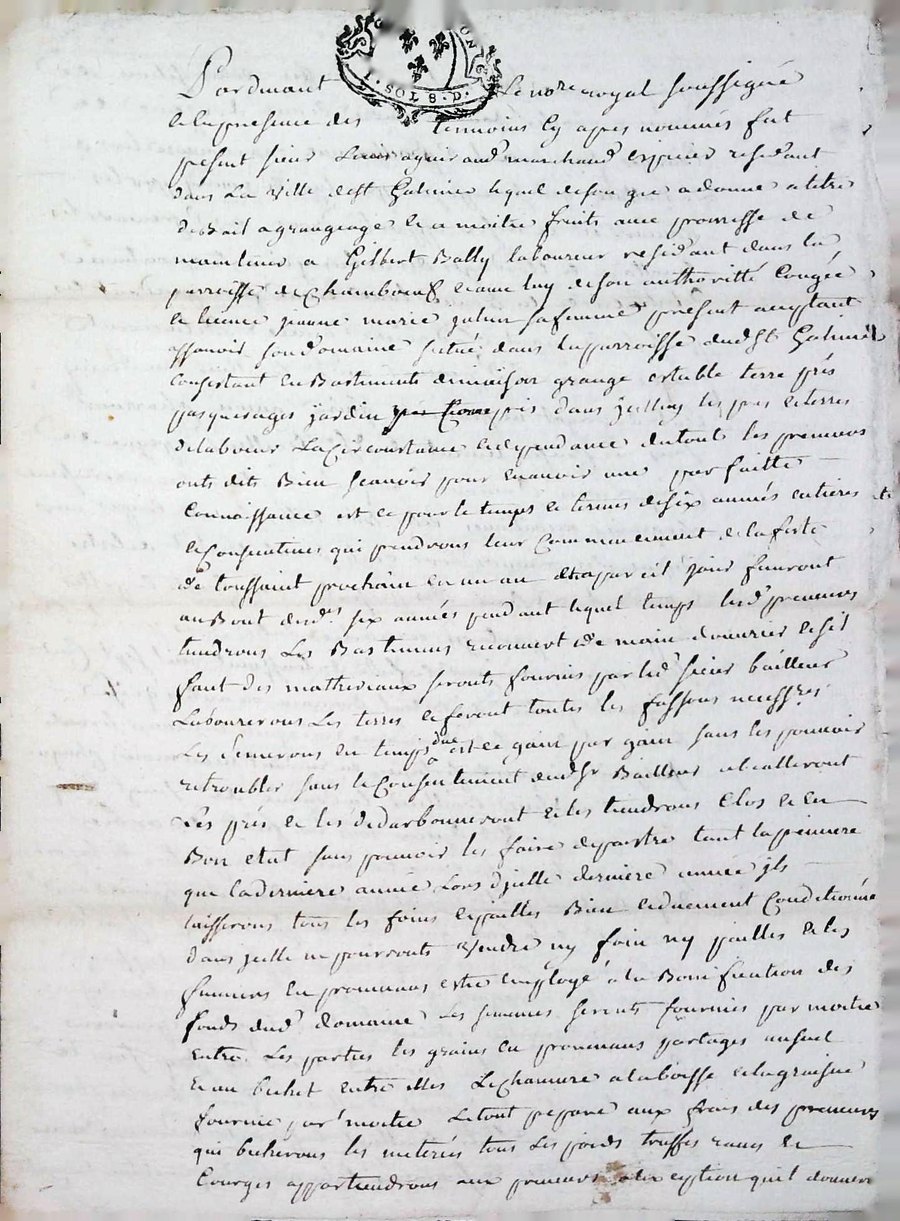 1 · SOLS · 8 · D ·
Pardevant Le no.re royal soussigné
et en presence des temoins cy apres nommés fut
present sieur Louis aguiraud marchand epicier residant
dans La ville de st Galmier lequel de son gre a donné a titre
de Bail a grangeage et a moitie fruits avec promesse de
maintenir a Gilbert Bally laboureur residant dans la
parroisse de Chamboeuf et avec luy de son authorittè Congée
et licence jeanne marie sa femme présent acceptant
assavoir son domaine situé dans la parroisse dud St Galmier
Consistant en Bastiments de maison grange estable terre prés
pasquerages jardin pris dans jceluy les pres et terres
de labeur La Circonstance et dependance du tout les preneurs
onts dits Bien scavoir pour en avoir une parfaitte
Connoissance est ce pour le temps et termes de six années entieres et
et Consecutives qui prendrons leur Commancement de la feste
de toussaint prochain en un an et a pareil jour finiront
au Bout desd.s six années pendant lequel temps lesd preneurs
tiendrons Les Bastimens recouvert de main d'ouvrier et s'il
faut des matheriaux seronts fournis par led sieur bailleur
Labourerons Les terres et feront toutes les fassons necessres
Les semerons en temps due est ce gain par gain sans les pouvoir
retroubler sans le Consentement dud Sr Bailleur
Les prés et les dedarbonneront et les tiendrons Clos et en
Bon etat sans pouvoir les faire depaistre tant la premiere
que la derniere année Lors d'jcelle derniere année jls
laisserons tous les foins et pailles Bien et duement Conditionnés
dans jcelle ne pourronts vendre ny foin ny pailles et les
fumiers en provenans estre employé a la Bonification des
fonds dud domaine Les semences seronts fournies par moitie
entre Les parties les grains en provenans partagés
et au bichet entre elles Le Chanvre a la boisse et la graisne
fournie par moitie Le tout preparé aux frais des preneurs
qui bicherons les tous Les poids truffes raves et
Courges appartiendrons aux preneurs a l'exception quil donneron